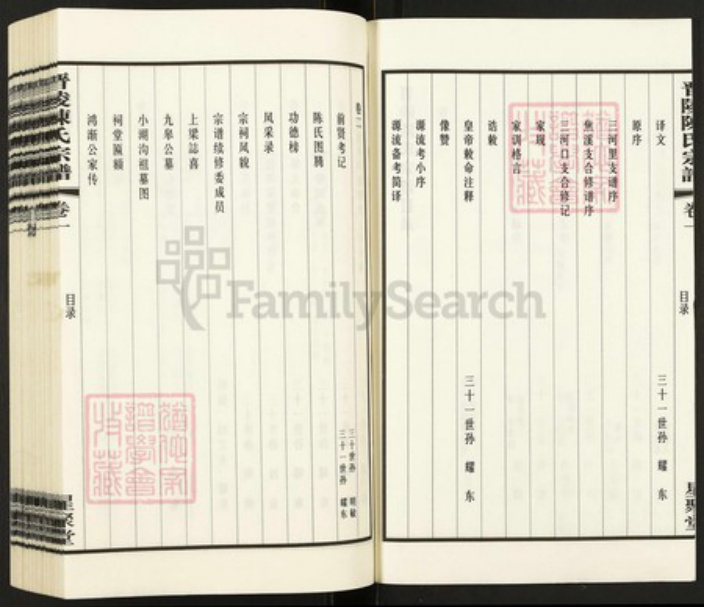 晋陵陈氏宗谱 卷一 目录 星聚堂
译文 三十一世孙 耀东
原序
三河里支谱序
焦溪支合修谱序
三河口支合修记
家规
家训格言
诰敕
皇帝敕命注释 三十一世孙 耀东
像赞
源流考小序
源流备考简译
卷二
前贤考记 三十世孙 明敏 三十一世孙 耀东
陈氏图腾
功德榜
风采录
宗祠风貌
宗谱续修委成员
上梁誌喜
九皋公墓
小湖沟祖墓图
祠堂匾额
鸿渐公家传
晋陵陈氏宗谱 卷一 目录 星聚堂
FamilySearch
犹他家谱学会收藏